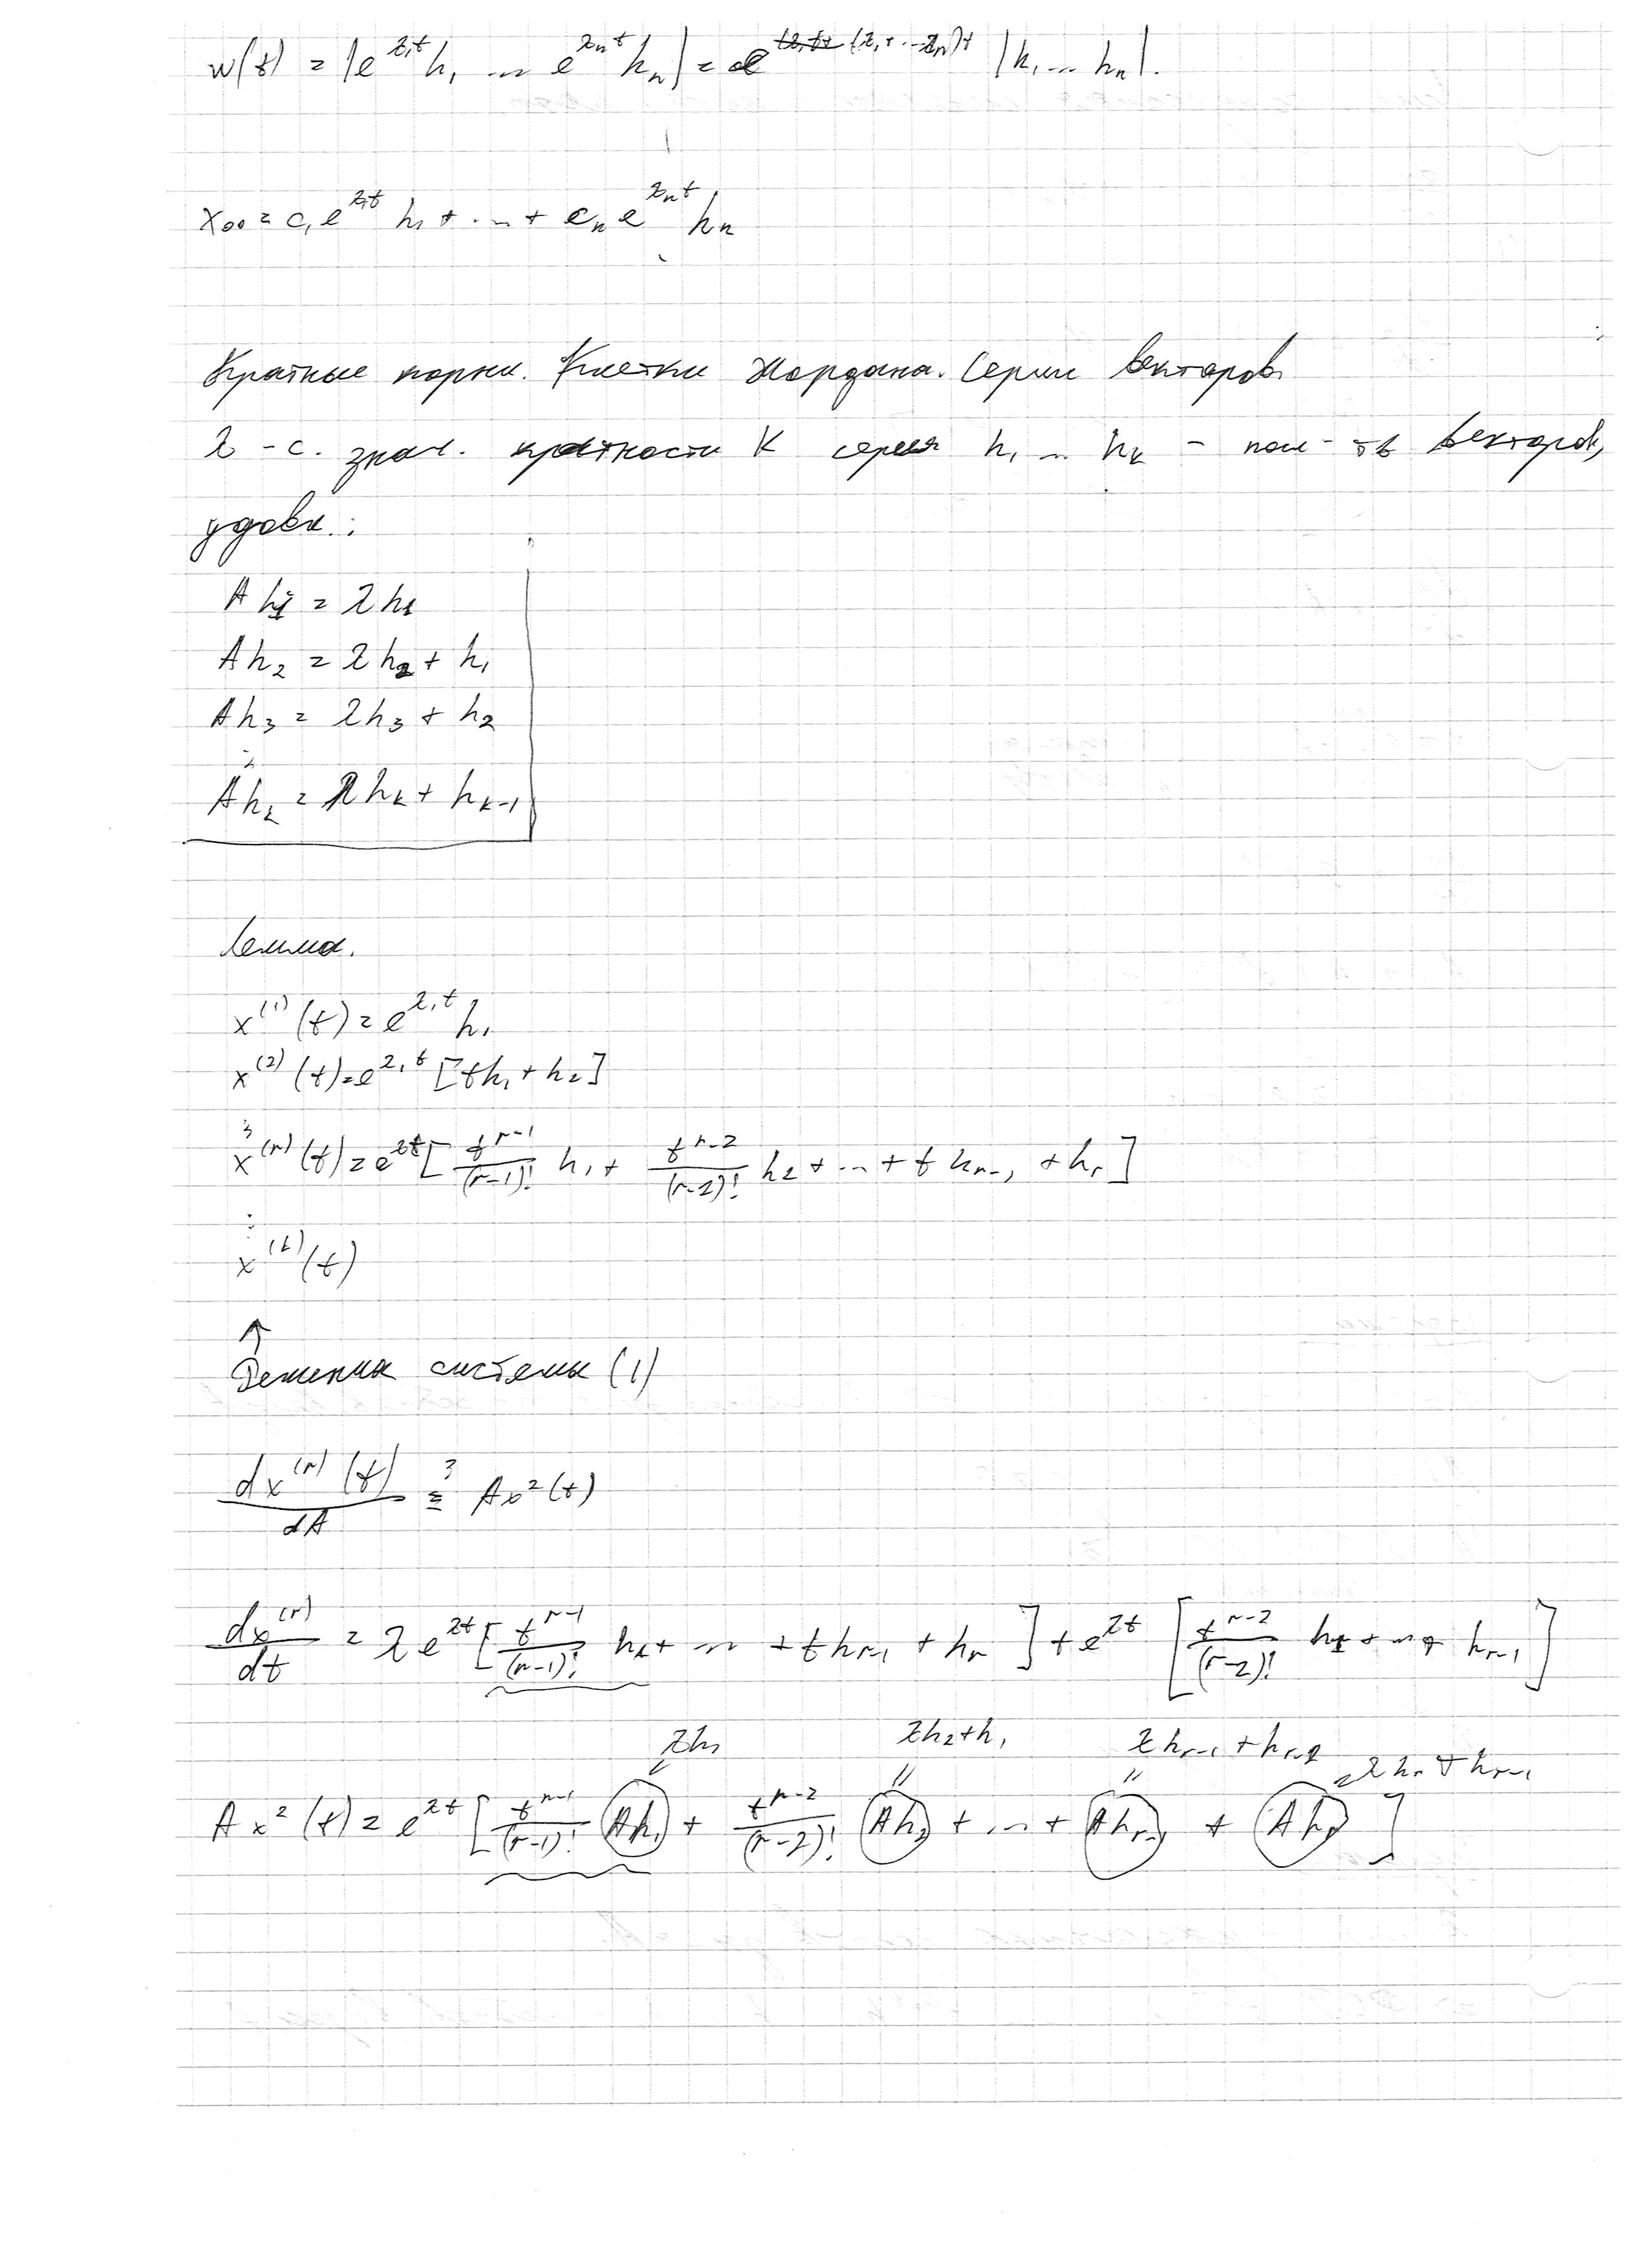 w(t) = |e^{λ₁t} h₁ ... e^{λₙt} hₙ| = e^{(λ₁+...λₙ)t} |h₁ ... hₙ|.
x₀₀ = c₁e^{λ₁t} h₁ + ... + cₙe^{λₙt} hₙ
Кратные корни. Клетки Жордана. Серии векторов.
λ - с. знач. кратности K серия h₁ ... hₖ - пол-ть векторов,
удовл.:
Ah₁ = λh₁
Ah₂ = λh₂ + h₁
Ah₃ = λh₃ + h₂
⋮
Ahₖ = λhₖ + hₖ₋₁
Лемма.
x⁽¹⁾(t) = e^{λ₁t} h₁
x⁽²⁾(t) = e^{λ₁t} [th₁ + h₂]
⋮
x⁽ʳ⁾(t) = e^{λt} [t^{r-1}/(r-1)! h₁ + t^{r-2}/(r-2)! h₂ + ... + t hᵣ₋₁ + hᵣ]
⋮
x⁽ᵏ⁾(t)
↑
Решения системы (1)
dx⁽ʳ⁾(t)/dA ≡? Ax²(t)
dx⁽ʳ⁾/dt = λe^{λt} [t^{r-1}/(r-1)! h₁ + ... + t hᵣ₋₁ + hᵣ] + e^{λt} [t^{r-2}/(r-2)! h₁ + ... + hᵣ₋₁]
λh₁ λh₂+h₁ λhᵣ₋₁ + hᵣ₋₂ λhᵣ + hᵣ₋₁
Ax²(t) = e^{λt} [t^{r-1}/(r-1)! Ah₁ + t^{r-2}/(r-2)! Ah₂ + ... + Ahᵣ₋₁ + Ahᵣ]